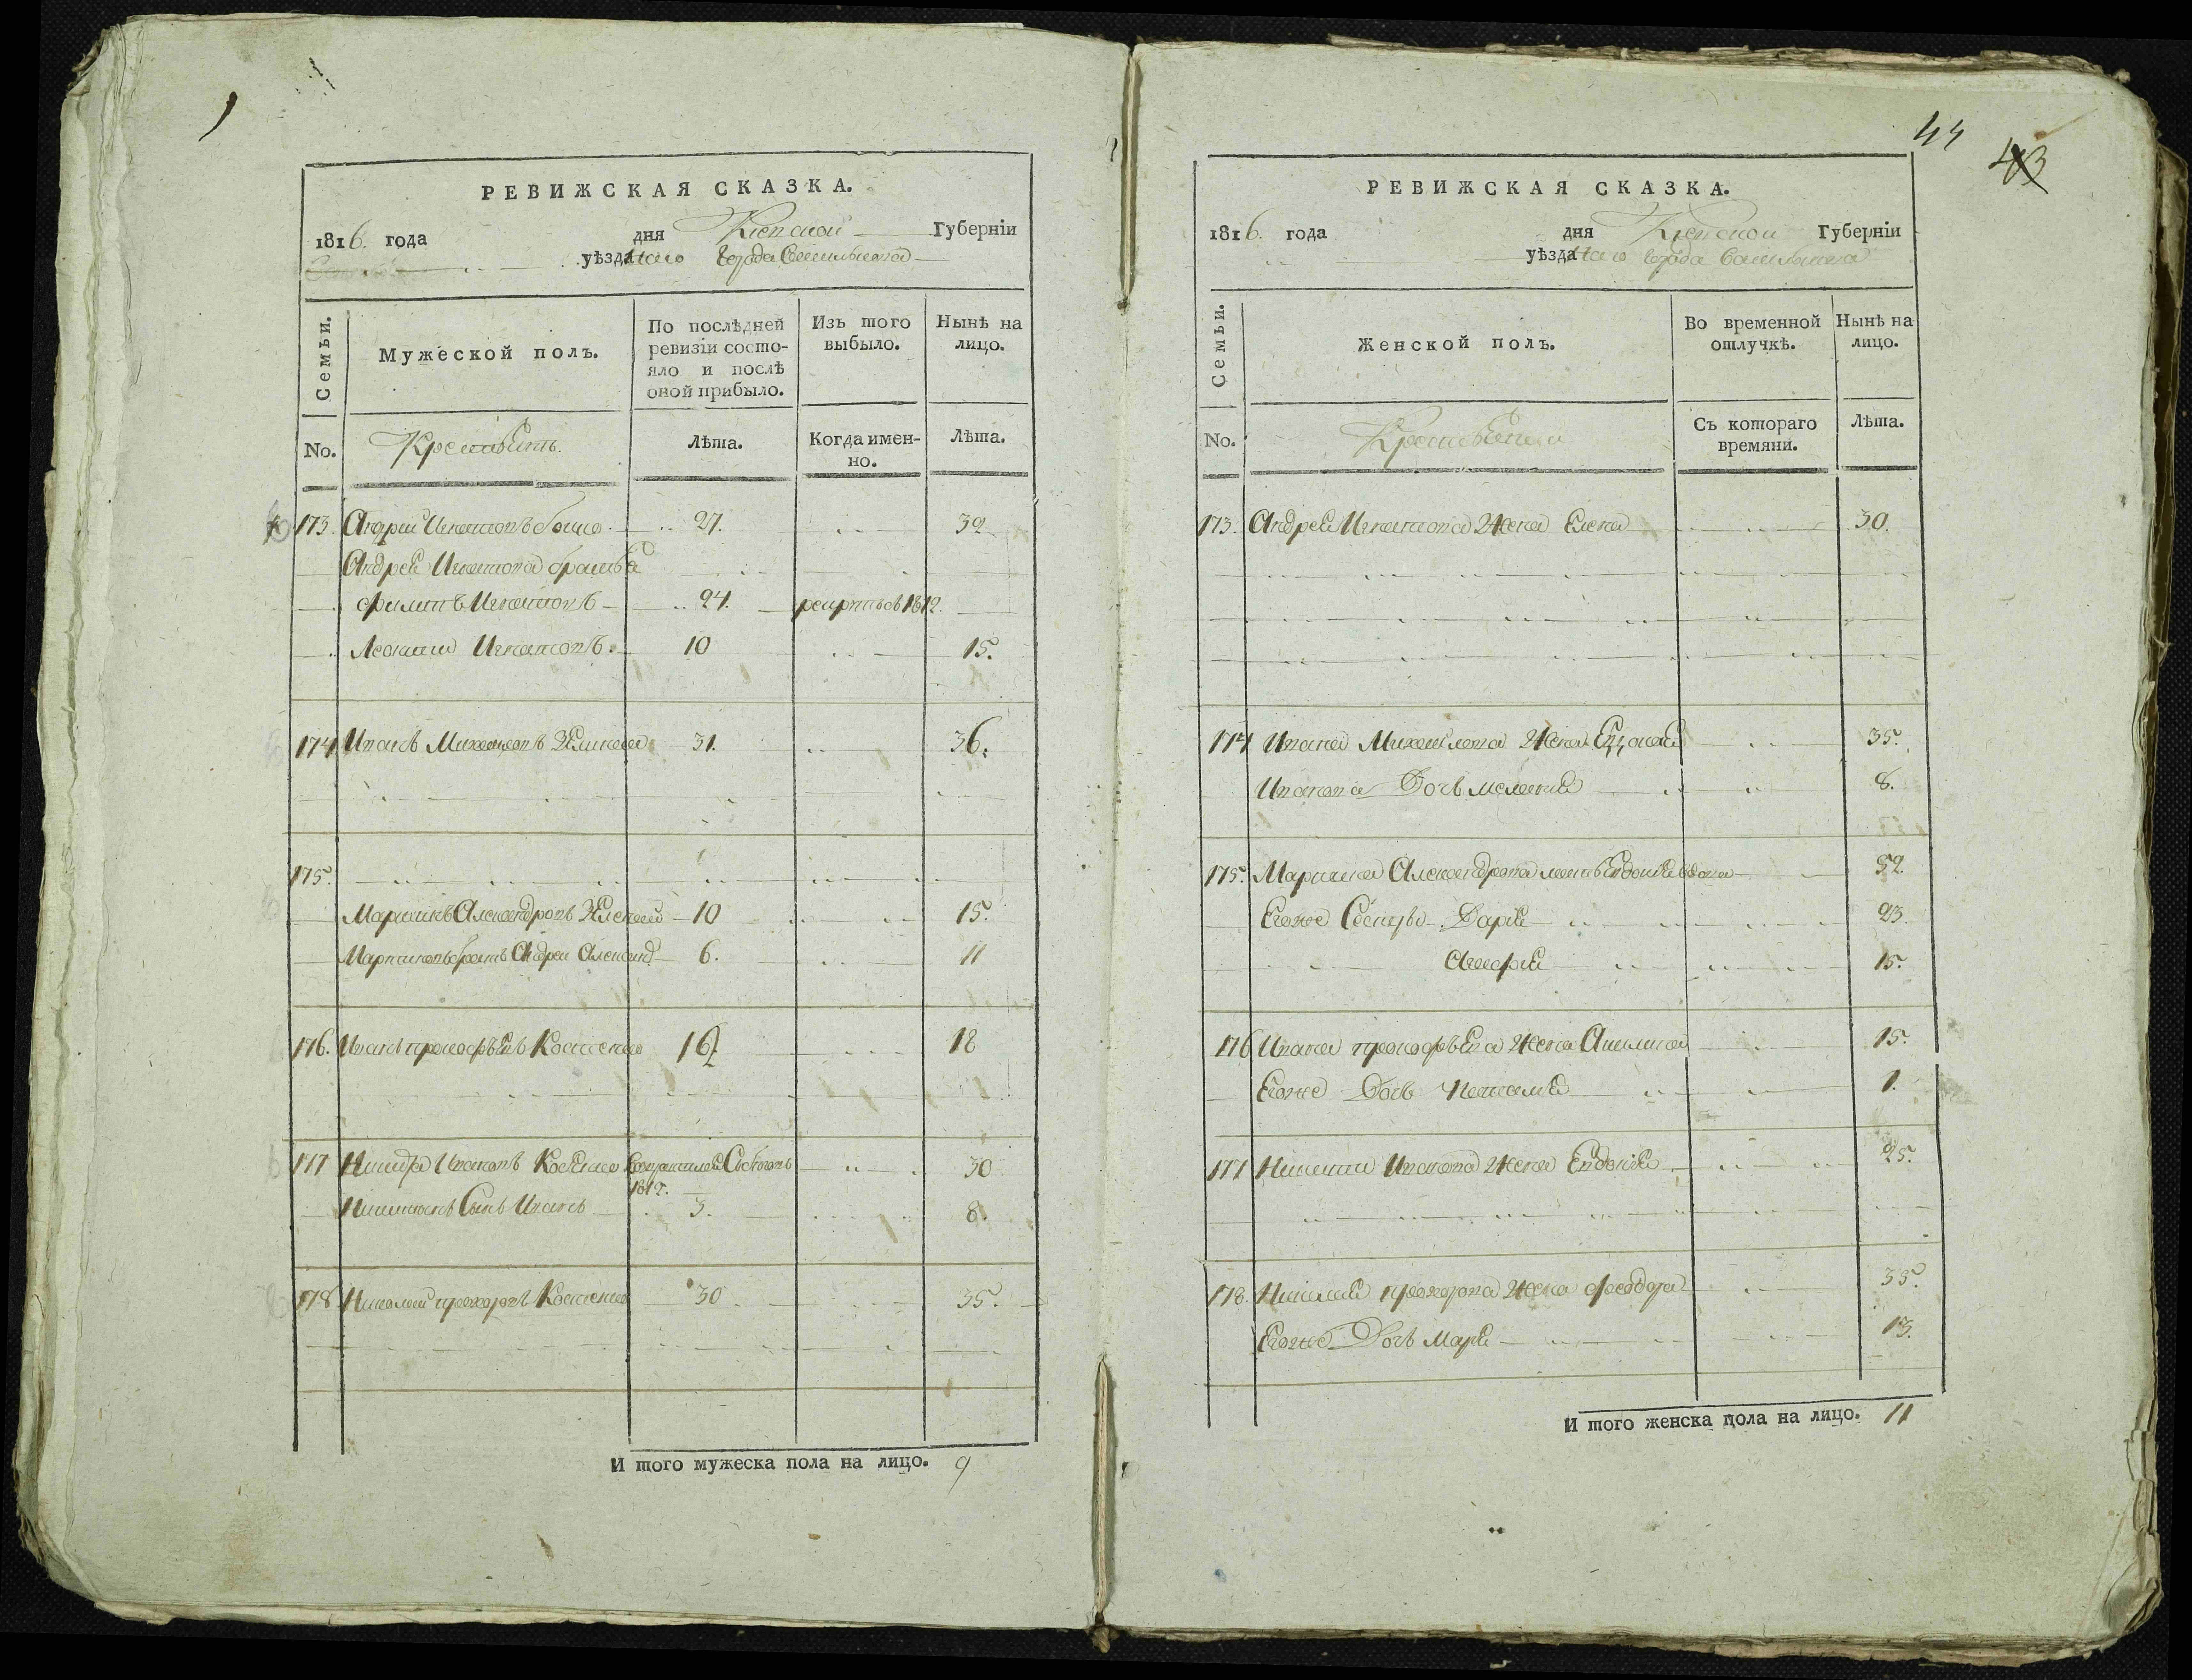 РЕВИЖСКАЯ СКАЗКА.
1816. года дня Кіевской Губерніи
уѣзда города
Семьи.
Мужеской полъ.
По послѣдней ревизіи состояло и послѣ оной прибыло.
Изъ того выбыло.
Нынѣ на лицо.
No.
Лѣта.
Когда именно.
Лѣта.
173. Андрей Игнатовъ 27. 32
Андрея Игнатова братья
Филипъ Игнатовъ 24. 1812.
Игнатовъ. 10 15.
174 Иванъ Михайловъ 31. 36.
175.
Мартинъ Александровъ 10 15.
Мартиновъ братъ Андрей Александ 6. 11
176. Иванъ Прокофьевъ Костенко 16 18
177 Никита Ивановъ 1812. 30
Никитинъ Сынъ Иванъ 3. 8.
178 Николай Прохоровъ Костенко 30 35.
И того мужеска пола на лицо. 9
44
43
РЕВИЖСКАЯ СКАЗКА.
1816. года дня Кіевской Губерніи
уѣзда города
Семьи.
Женской полъ.
Во временной отлучкѣ.
Нынѣ на лицо.
No.
Съ котораго времяни.
Лѣта.
173. Андрея Игнатова Жена Елена 30.
174 Ивана Михайлова Жена 35.
Иванова Дочь Меланія 8.
175. Мартина Александрова мать Евдокія вдова 52
Егоже Сестры Дарія 23.
Агафія 15.
176 Ивана Прокофьева Жена Акилина 15.
Егоже Дочь Наталія 1.
177 Никиты Иванова Жена Евдокія 25.
178. Николая Прохорова Жена Феодора 35.
Егоже Дочь Марія 13.
И того женска пола на лицо. 11